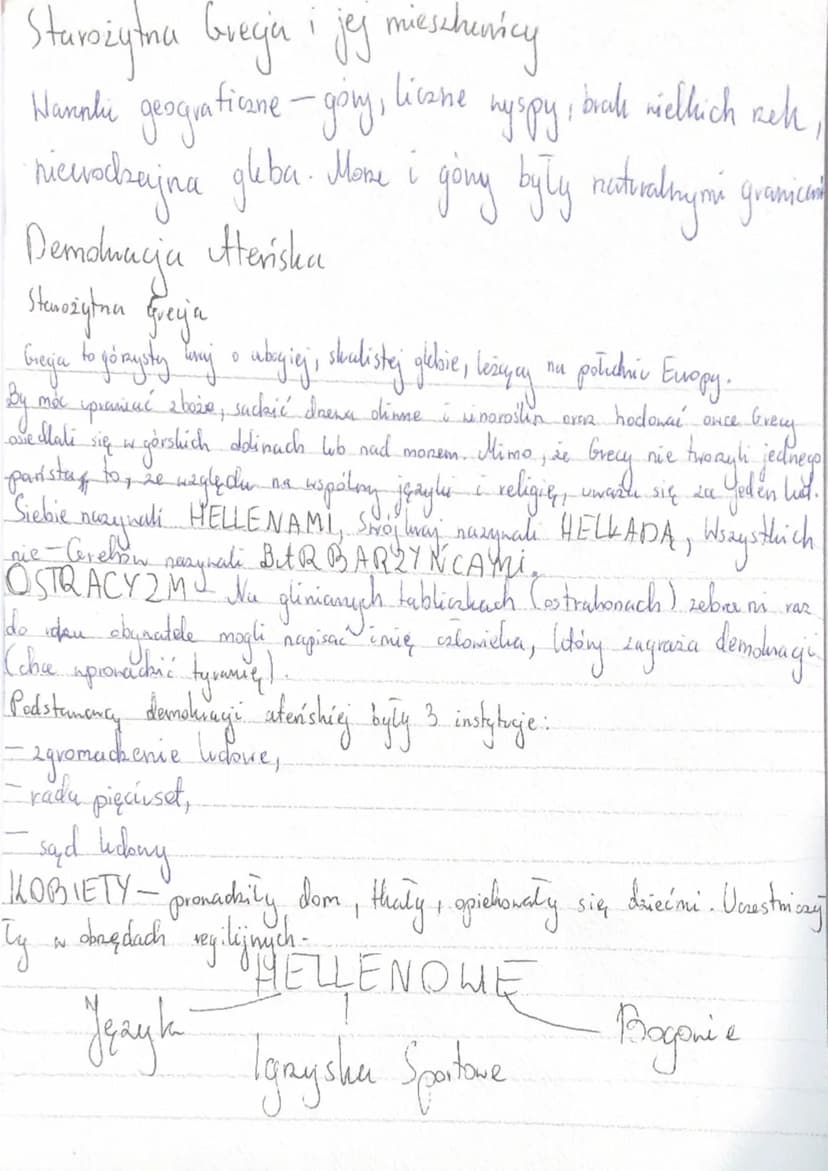 Starożytna Grecja i jej mieszkańcy
Warunki geograficzne – góry, liczne wyspy, brak wielkich rzek,
nieurodzajna gleba. Morze i góry były naturalnymi granicami
Demokracja Ateńska
Starożytna Grecja
Grecja to górzysty kraj o ubogiej, skalistej glebie, leżący na południu Europy.
By móc uprawiać zboże, sadzić drzewa oliwne i winorośl oraz hodować owce Grecy
osiedlali się w górskich dolinach lub nad morzem. Mimo, że Grecy nie tworzyli jednego
państwa to, ze względu na wspólny język i religię, uważali się za jeden lud.
Siebie nazywali HELLENAMI, Swój kraj nazywali HELLADĄ, Wszystkich
nie-Greków nazywali BARBARZYŃCAMI.
OSTRACYZM – Na glinianych tabliczkach (ostrakonach) zebrani raz
do roku obywatele mogli napisać imię człowieka, który zagraża demokracji
(chce wprowadzić tyranię).
Podstawową demokracji ateńskiej były 3 instytucje:
– zgromadzenie ludowe,
– rada pięciuset,
– sąd ludowy
KOBIETY – prowadziły dom, tkały, opiekowały się dziećmi. Uczestniczy
ły w obrzędach regilijnych.
HELLENOWE
Język
Igrzyska Sportowe
Bogowie